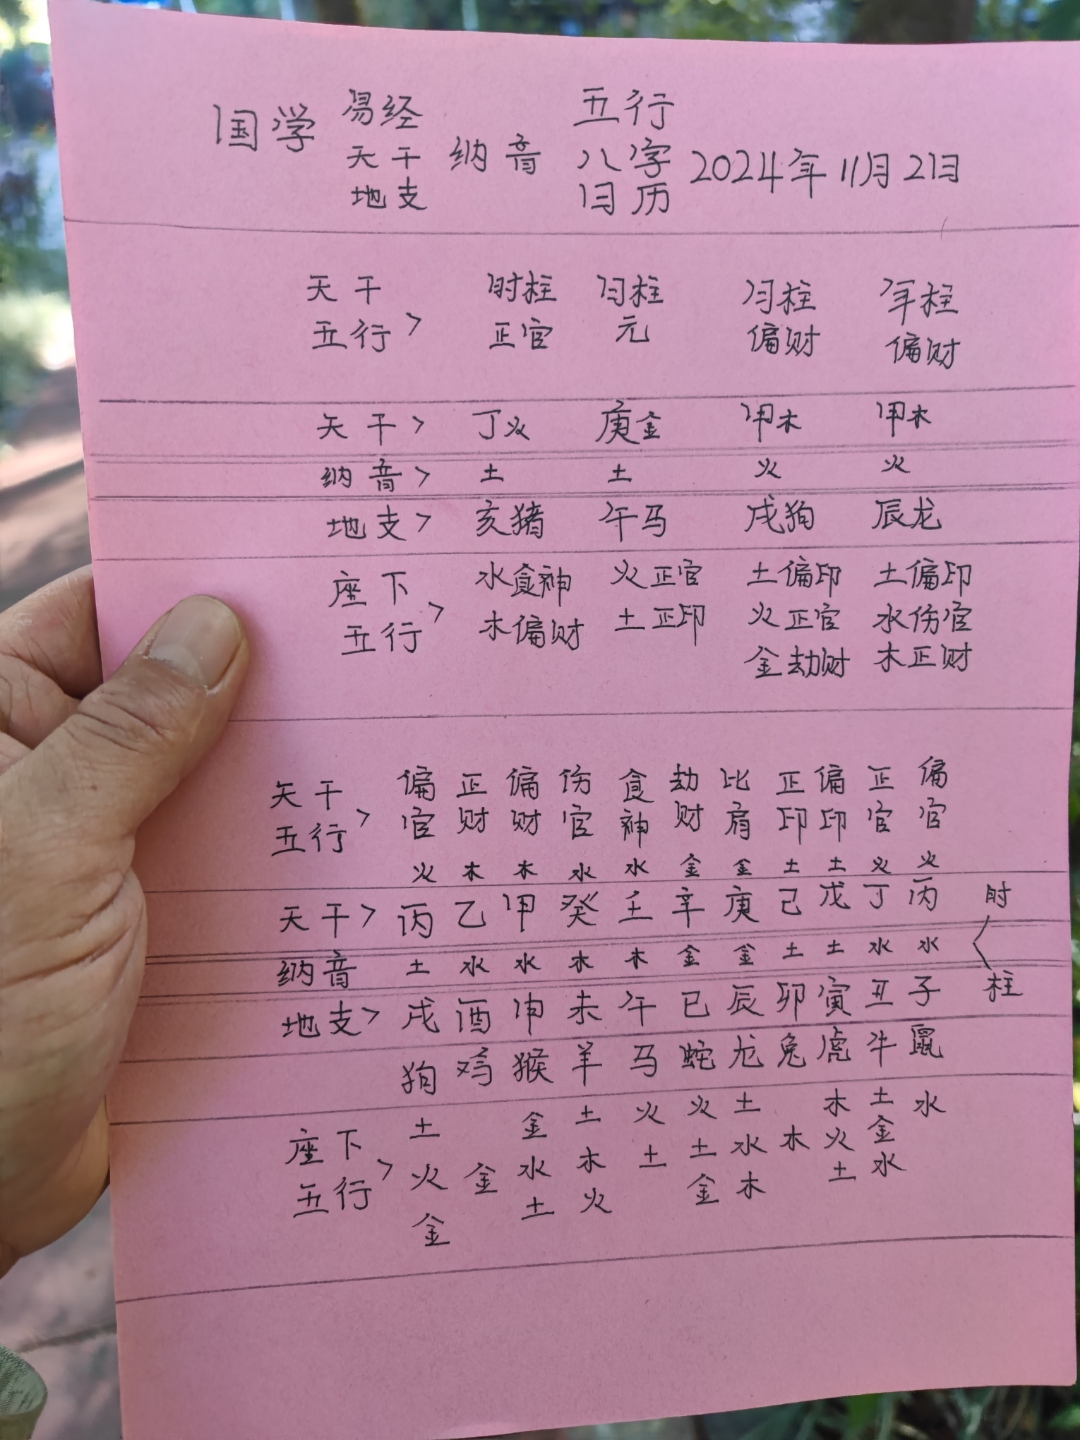 国学 易经 五行
天干 纳音 八字 2024年11月2日
地支 日历
天干 时柱 日柱 月柱 年柱
五行> 正官 元 偏财 偏财
天干> 丁火 庚金 甲木 甲木
纳音> 土 土 火 火
地支> 亥猪 午马 戌狗 辰龙
座下 水食神 火正官 土偏印 土偏印
五行> 木偏财 土正印 火正官 水伤官
金劫财 木正财
天干 偏 正 偏 伤 食 劫 比 正 偏 正 偏
五行> 官 财 财 官 神 财 肩 印 印 官 官
火 木 木 水 水 金 金 土 土 火 火
天干> 丙 乙 甲 癸 壬 辛 庚 己 戊 丁 丙 时
纳音 土 水 水 木 木 金 金 土 土 水 水
地支> 戌 酉 申 未 午 巳 辰 卯 寅 丑 子 柱
狗 鸡 猴 羊 马 蛇 龙 兔 虎 牛 鼠
座下 土 金 土 火 火 土 木 土 水
五行> 火 金 水 木 土 土 水 木 火 金
金 土 火 金 木 土 水